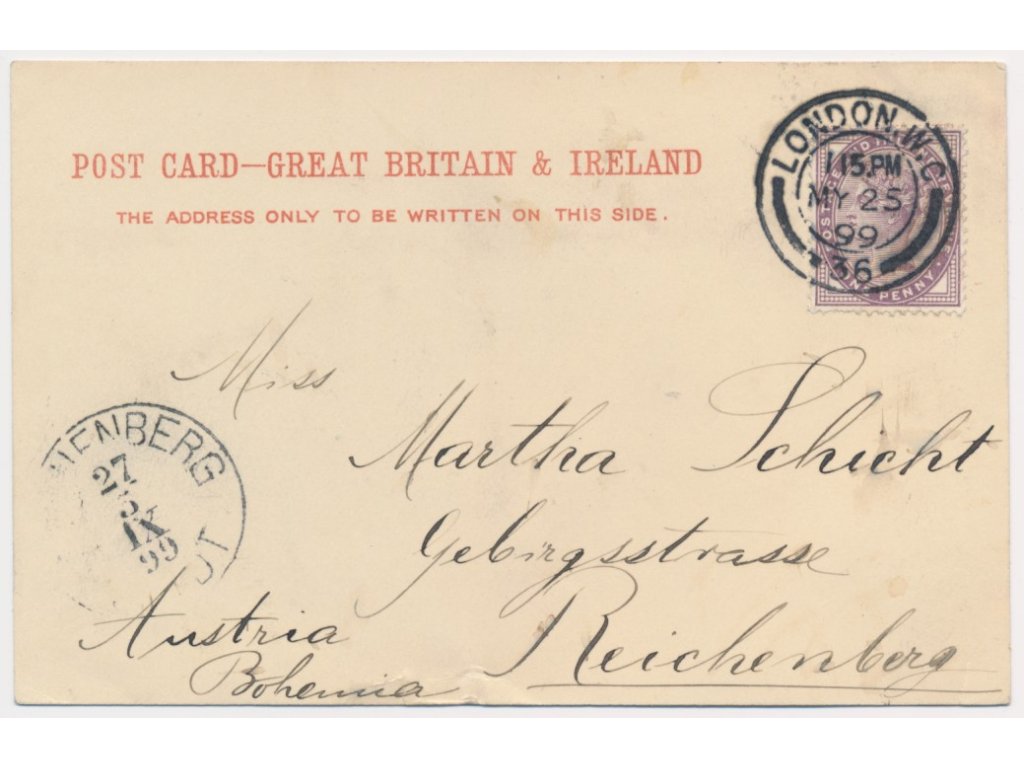 POST CARD—GREAT BRITAIN & IRELAND
THE ADDRESS ONLY TO BE WRITTEN ON THIS SIDE.
LONDON.W.C
1 15.PM
MY 25
99
36
PENNY
Miss
Martha Schicht
Gebirgsstrasse
Reichenberg
Austria
Bohemia
HENBERG
27
5
IX
99